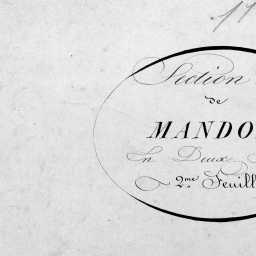 Section
de
MANDO
En Deux
2.me Feuill